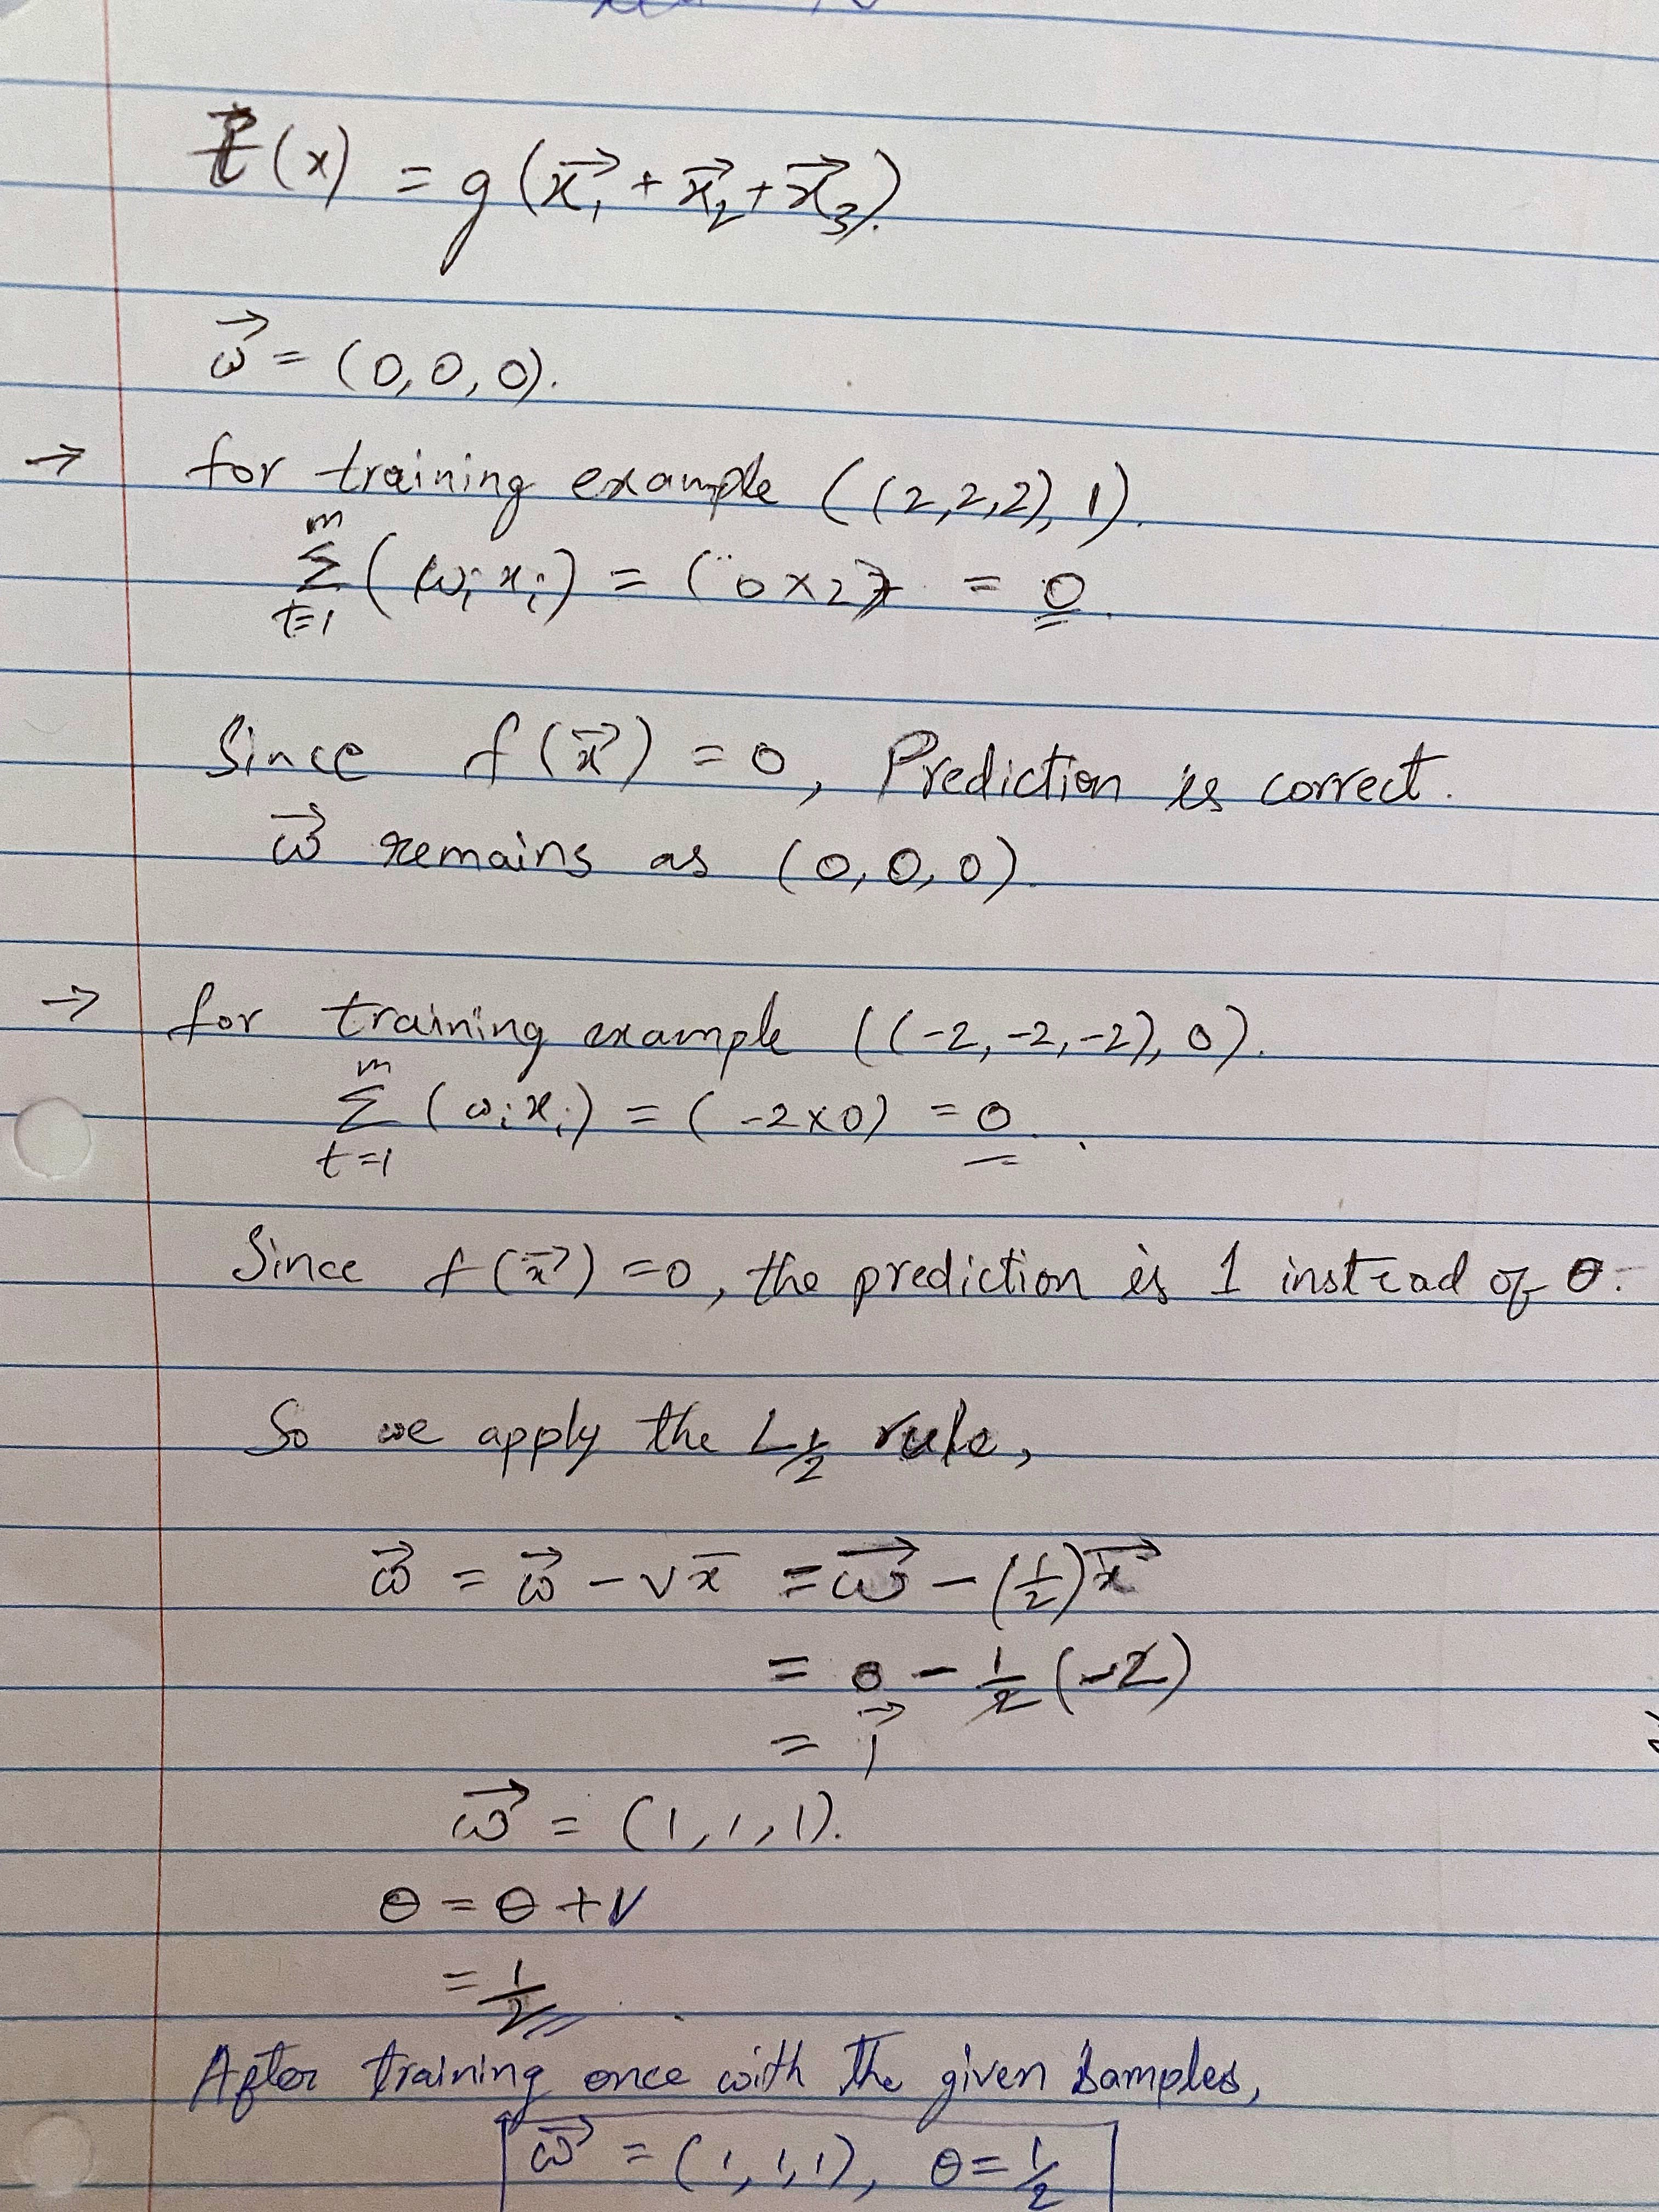 t⃗(x) = g(x⃗₁ + x⃗₂ + x⃗₃).
ω⃗ = (0,0,0).
→ for training example ((2,2,2), 1).
m
Σ (ωᵢ xᵢ) = (0×2) = 0.
t=1
Since f(x⃗) = 0, Prediction is correct.
ω⃗ remains as (0,0,0).
→ for training example ((-2,-2,-2), 0).
m
Σ (ωᵢxᵢ) = (-2×0) = 0.
t=1
Since f(x⃗) = 0, the prediction is 1 instead of 0.
So we apply the L½ rule,
ω⃗ = ω⃗ - νx̄ = ω⃗ - (½)x⃗
= 0 - ½(-2)
= 1⃗
ω⃗ = (1,1,1).
θ = θ + ν
= ½
After training once with the given samples,
ω⃗ = (1,1,1), θ = ½